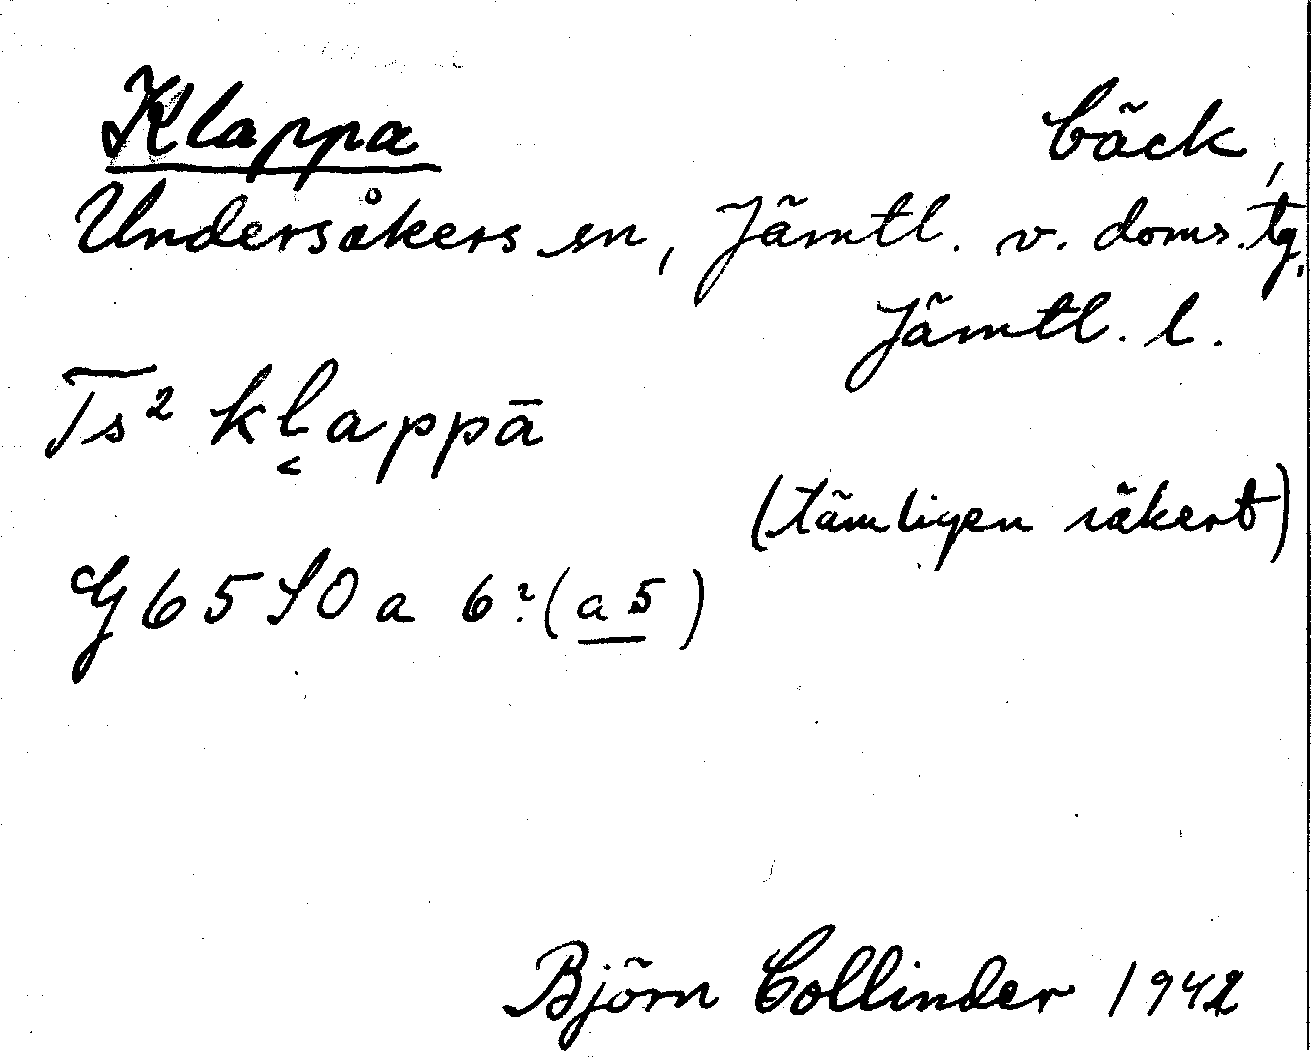 Klappa bäck,
Undersåkers sn, Jämtl. v. doms. tg,
Jämtl. l.
Ts² kl̬appā
(tämligen säkert)
G 65 SO a 6? (a 5)
Björn Collinder 1942